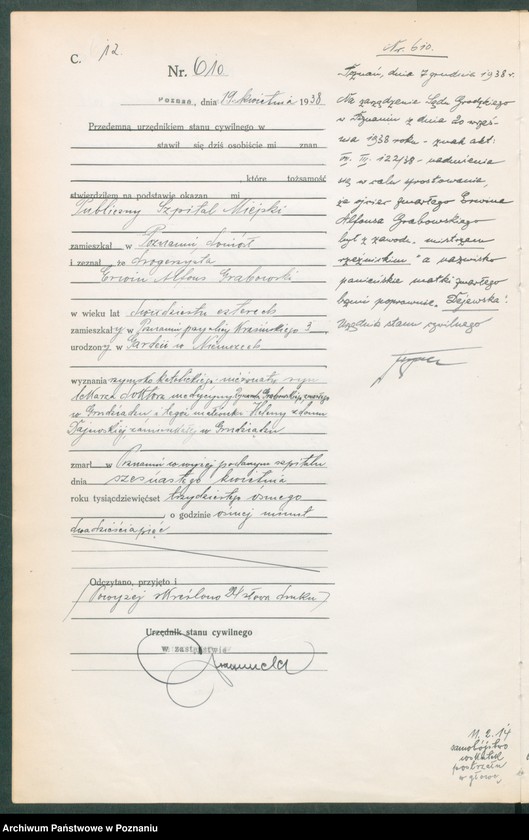 C. 12
Nr. 610
Poznań, dnia 19 kwietnia 1938
Przedemną urzędnikiem stanu cywilnego w
stawił się dziś osobiście mi znan
które tożsamość
stwierdziłem na podstawie okazan mi
Publiczny Szpital Miejski
zamieszkał w Poznaniu
i zeznał, że drogerzysta
Erwin Alfons Grabowski
w wieku lat dwudziestu czterech
zamieszkały w Poznaniu przy ulicy Krasińskiego 3
urodzony w Gardeii w Niemczech
wyznania rzymsko katolickiego nieżonaty syn
lekarza doktora medycyny Grabowskiego, zmarłego
w Grudziądzu, i tegoż małżonki Heleny z domu
Fajewskiej, zamieszkałej w Grudziądzu
zmarł w Poznaniu w wyżej podanym szpitalu
dnia szesnastego kwietnia
roku tysiącdziewięćset trzydziestego ósmego
, o godzinie ósmej minut
dwadzieścia pięć
Odczytano, przyjęto i
(Powyżej skreślono 24 słowa druku)
Urzędnik stanu cywilnego
w zastępstwie
Nr. 610.
Poznań, dnia 7 grudnia 1938 r.
Na zarządzenie Sądu Grodzkiego
w Poznaniu z dnia 20 wrześ-
nia 1938 roku - znak akt:
122/38 - nadmienia
się w celu sprostowania,
że ojciec zmarłego Erwina
Alfonsa Grabowskiego
był z zawodu "mistrzem
rzeźnickim" a nazwisko
panieńskie matki zmarłego
brzmi poprawnie "Zajewska".
Urzędnik stanu cywilnego
11. 2. 14
samobójstwo
wskutek
postrzału
w głowę
Archiwum Państwowe w Poznaniu